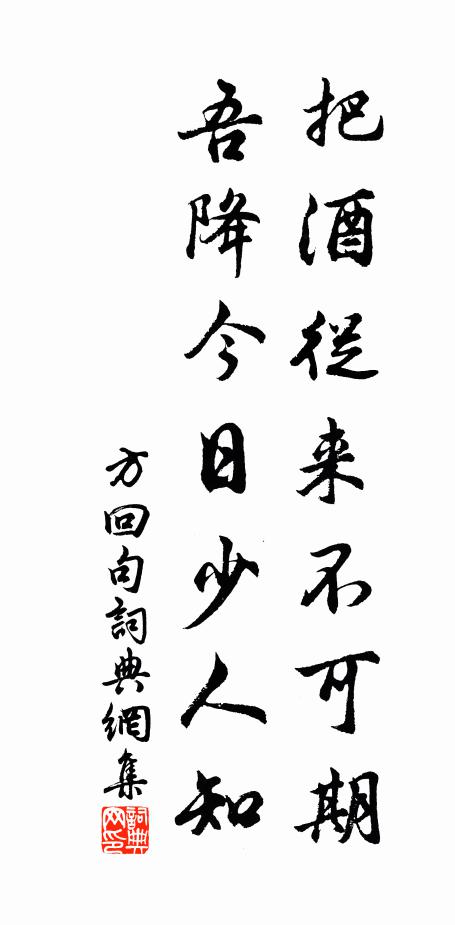 把酒從来不可期
吾降今日少人知
方回句詞典網集
詞典网印